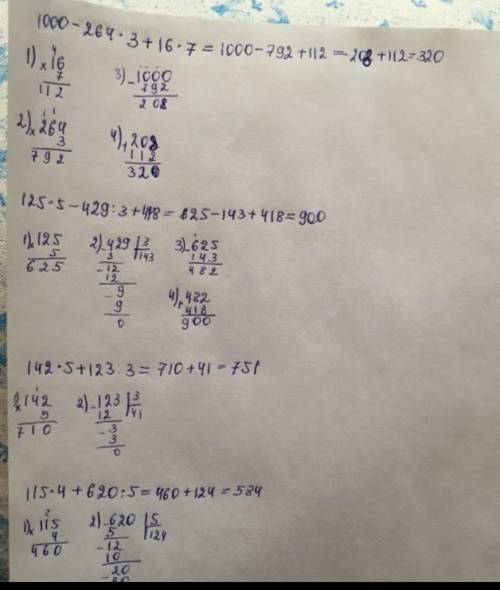 1000-264·3+16·7=1000-792+112=208+112=320
1) ×16 7 112
3) -1000 792 208
2) ×264 3 792
4) +208 112 320
125·5-429:3+418=625-143+418=900
1) ×125 5 625
2) -429 |3 143 3 -12 12 -9 9 0
3) -625 143 482
4) +482 418 900
142·5+123:3=710+41=751
1) ×142 5 710
2) -123 |3 41 12 -3 3 0
115·4+620:5=460+124=584
1) ×115 4 460
2) -620 |5 124 5 -12 10 -20 20